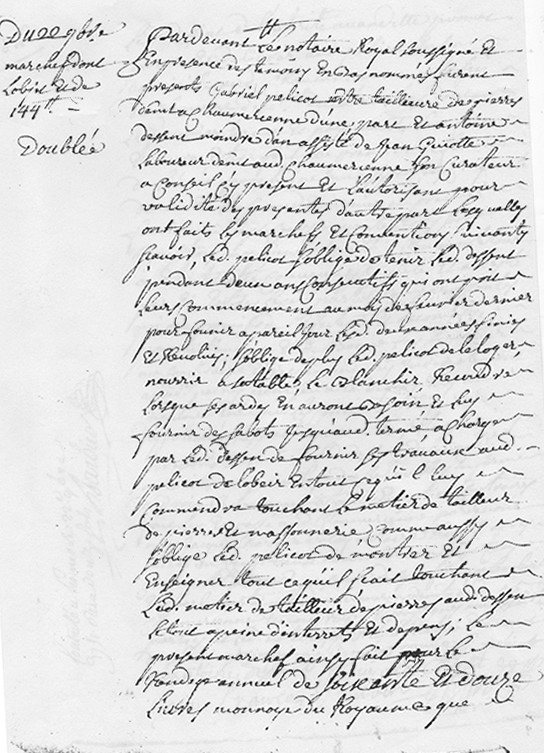 Du 22 9bre
marchef dont
Lobit et de
144tt. =
Doublée
Pardevant Le notaire Royal soussigné Et
En presence des temoins En bas nommes furent
presents Gabriel pelicot mtre tailleure de pierres
demt a Chaumerienne d'une part Et antoine
dessent moindre dan assisté de Jean Guiotte
Laboureur demt aud. Chaumerienne son Curateur
a Conseil cy present Et Lautorisant pour
validité des presentes d'autre part Lesquelles
ont faits Les marchefs Et Conventions suivants
scavoir, Led. pelicot s'oblige de tenir Led. dessent
pendant deux ans consecutifs qui ont prit
Leurs commencement au mois de feuvrier dernier
pour finir a pareil Jour Lesd. deux années finies
Et Revolües, s'oblige de plus Led. pelicot de le loger,
nourrir a sa table, Le Blanchir
Lorsque ses ardes En auront Besoin Et Luy
fournir des sabots Jusqu'aud. terme a Charge
par Led. dessen de fournir ses travaux aud.
pelicot de Lobeir En tout ce qu'il Luy
commendra touchant Le metier de tailleur
de pierres Et massonnerie, comme aussy
s'oblige Led. pelicot de montrer Et
Enseigner tout ce qu'il scait touchant
Led. metier de tailleur de pierres aud. dessen
Le tout a peine d'interrets Et depens; Le
present marchef ainsy fait pour Le
Rendage annuel de soixante Et douze
Livres monnoye du Royaume que